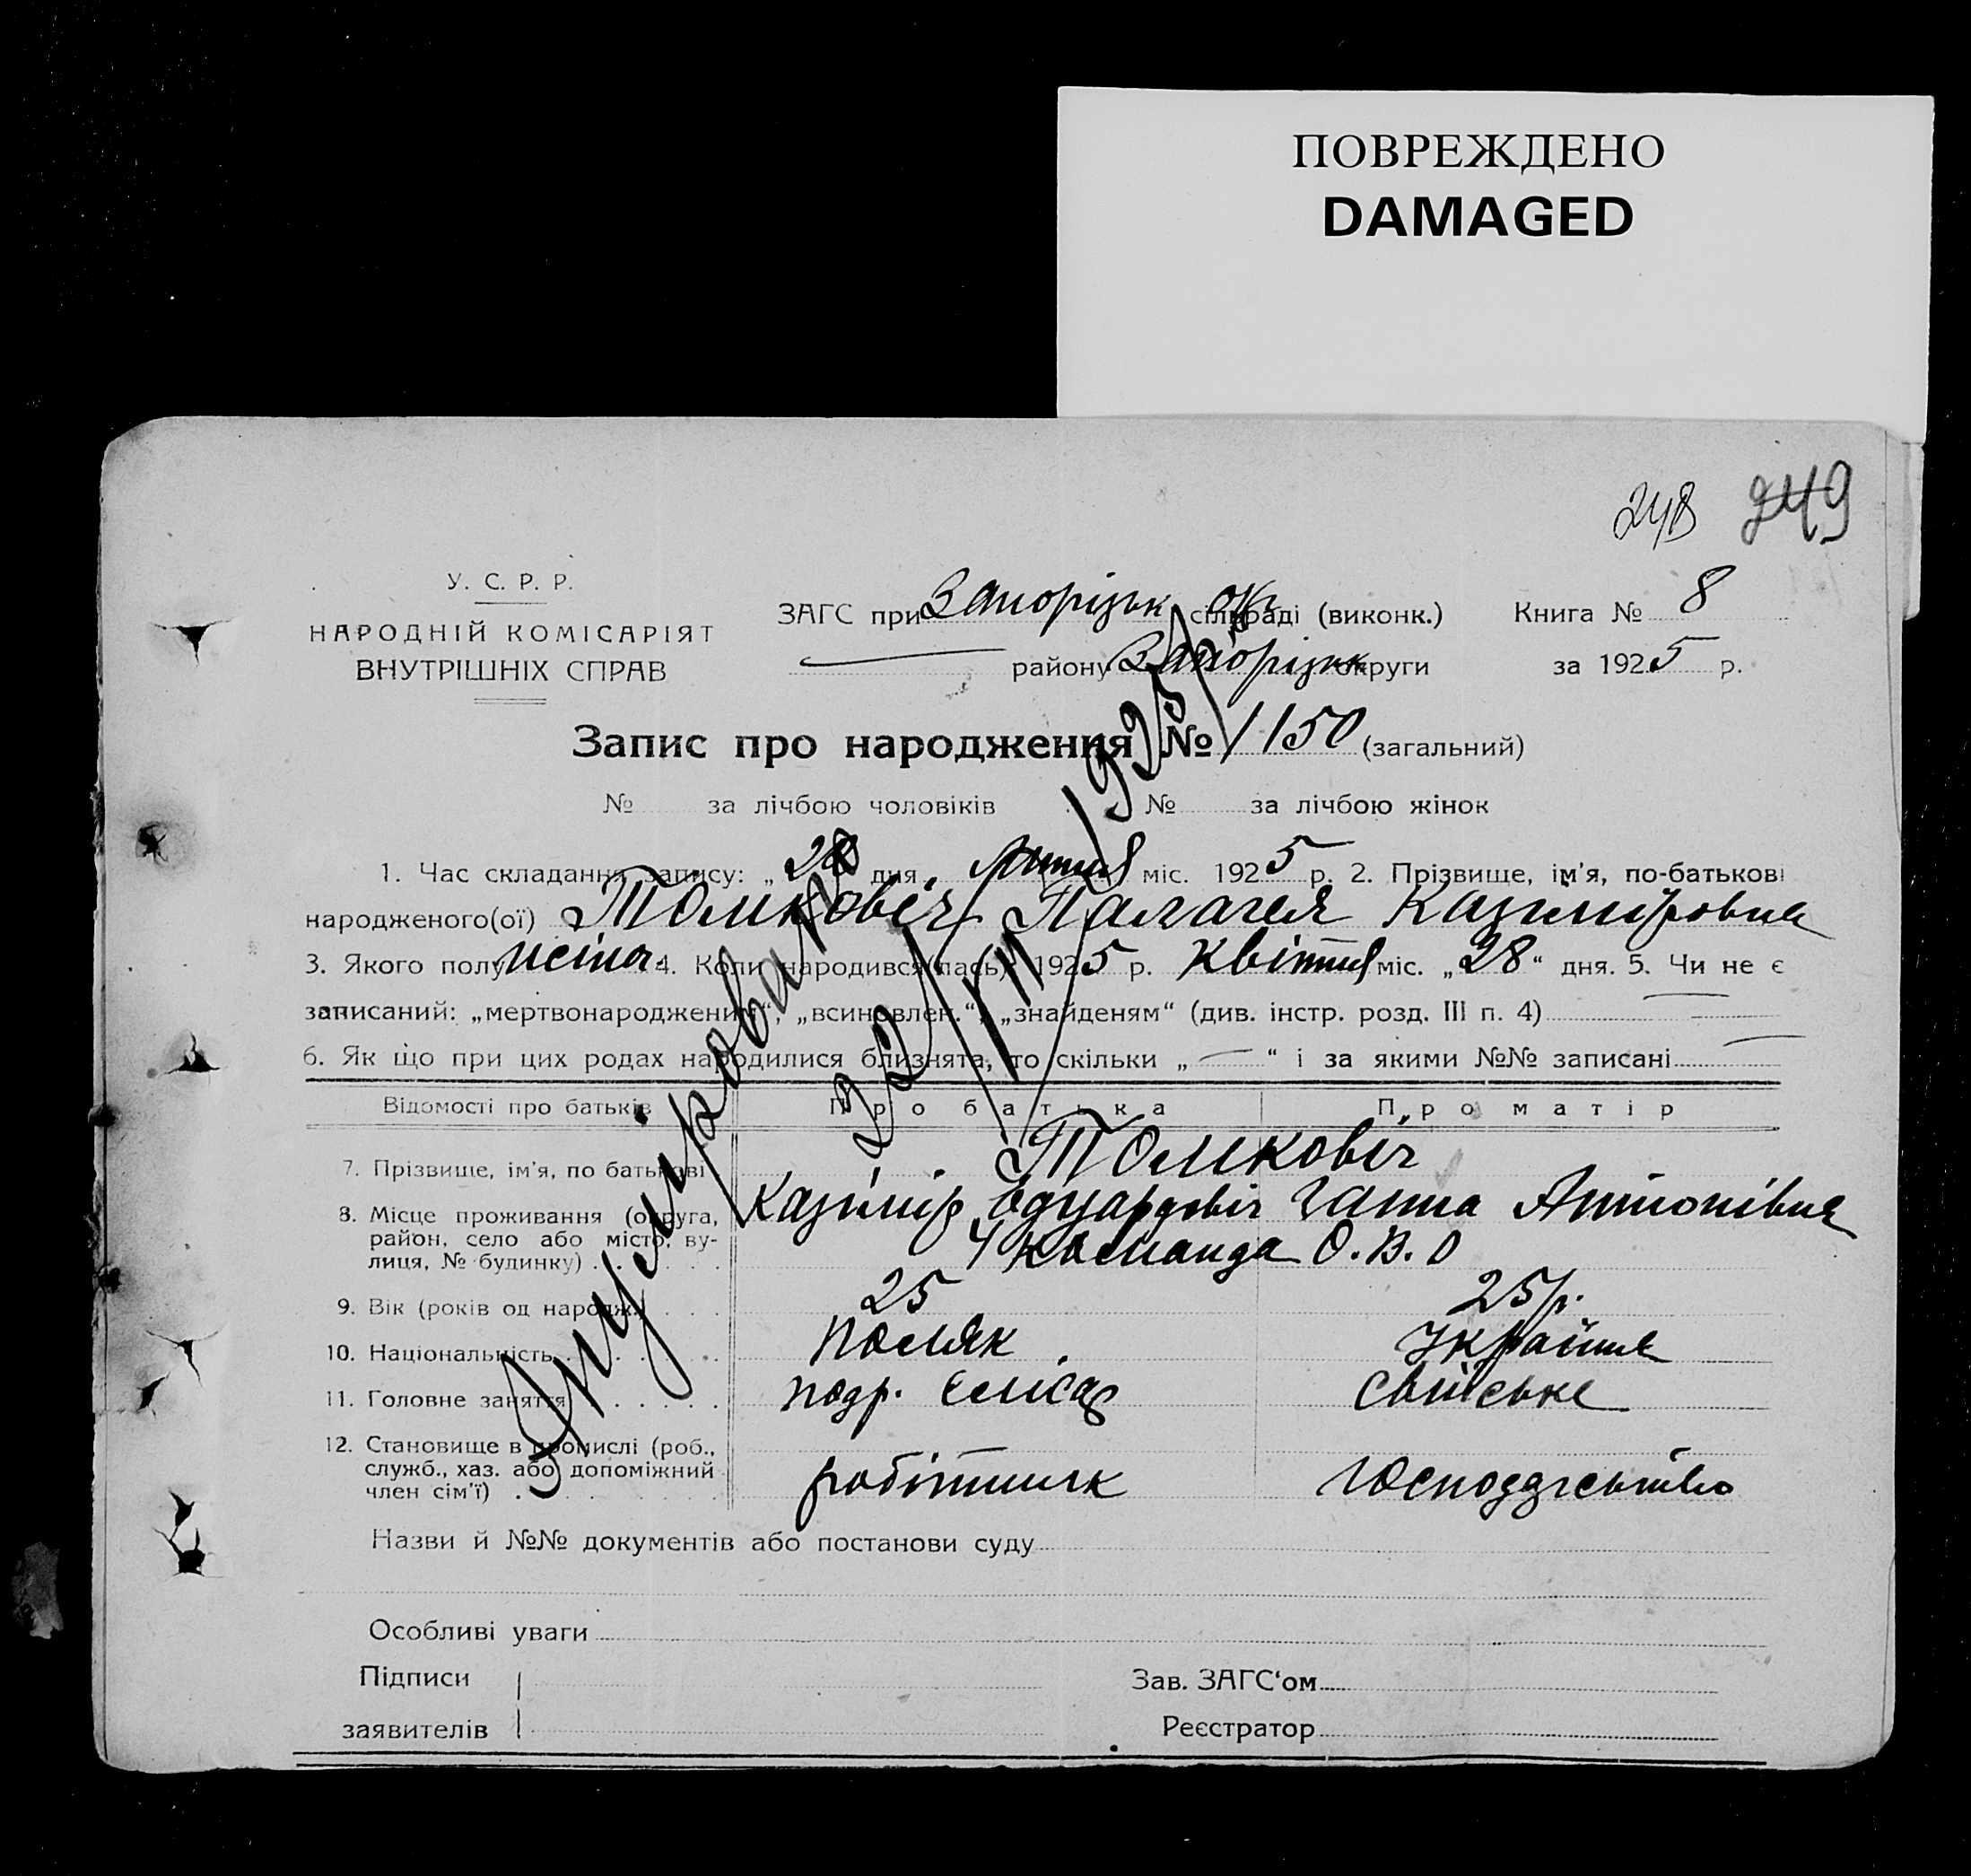 ПОВРЕЖДЕНО
DAMAGED
248 249
У. С. Р. Р.
НАРОДНІЙ КОМІСАРІЯТ
ВНУТРІШНІХ СПРАВ
ЗАГС при Запорізьк окр сільраді (виконк.) Книга № 8
району Запорізьк округи за 1925 р.
Запис про народження № 1150 (загальний)
№ за лічбою чоловіків № за лічбою жінок
1. Час складання запису: „28 дня липня міс. 1925 р. 2. Прізвище, ім'я, по-батькові
народженого(ої) Толикович Палагея Казимировна
3. Якого полу жіноч. 4. Коли народився(лась): 1925 р. Квітня міс. „28“ дня. 5. Чи не є
записаний: „мертвонародженим“, „всиновлен.“, „знайденям“ (див. інстр. розд. III п. 4)
6. Як що при цих родах народилися близнята, то скільки „ “ і за якими №№ записані
Відомості про батьків Про батька Про матір
7. Прізвище, ім'я, по батькові Толикович
Казимір Едуардовіч Ганна Антонівна
8. Місце проживання (округа,
район, село або місто, ву-
лиця, № будинку) 4 Команда О.В.О
9. Вік (років од народж.) 25 25 р.
10. Національність Поляк Україн
11. Головне заняття подр. слюсар свійське
12. Становище в промислі (роб.,
служб., хаз. або допоміжний
член сім'ї) робітник господарство
Анулировано
22/VII 1925
Назви й №№ документів або постанови суду
Особливі уваги
Підписи
заявителів
Зав. ЗАГС‘ом
Реєстратор